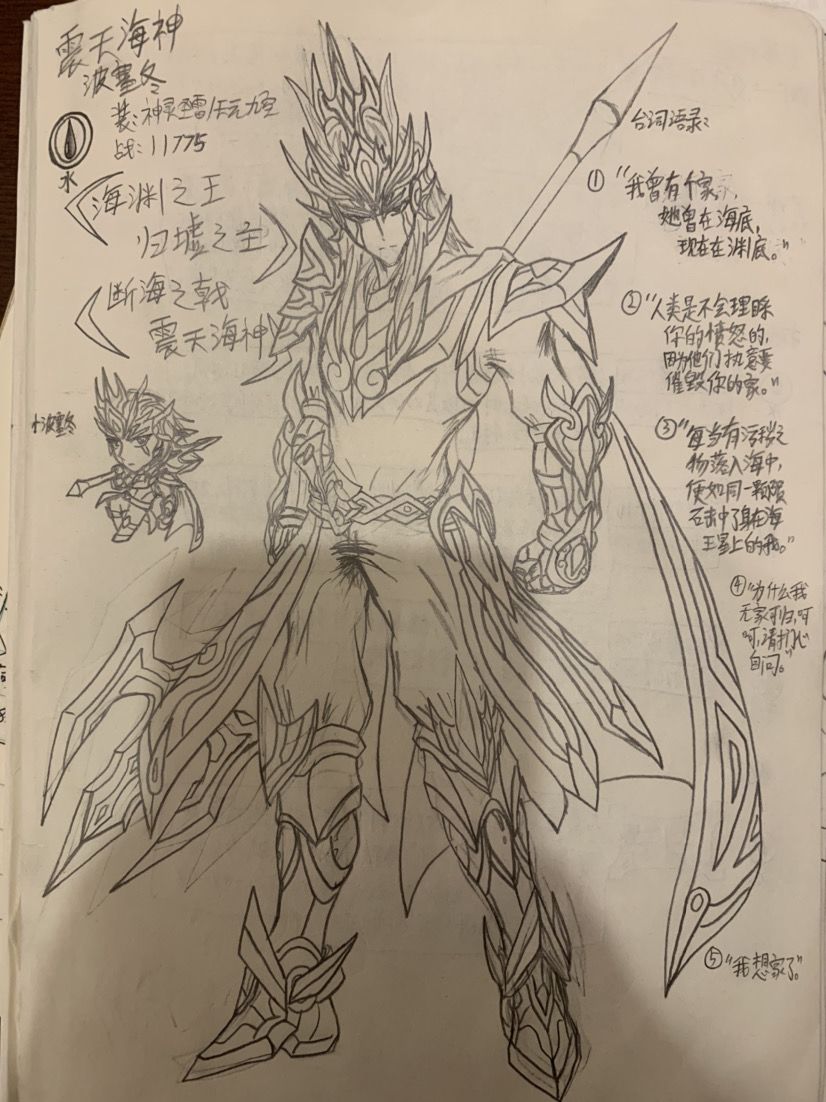 震天海神
波塞冬
装:神灵圣雷/天元九圣
战:11775
水
海渊之王
归墟之主
断海之戟
震天海神
小波塞冬
台词语录:
①“我曾有个家,
她曾在海底,
现在在渊底。”
②“人类是不会理睬
你的愤怒的,
因为他们执意要
催毁你的家。”
③“每当有污秽之
物落入海中,
便如同一颗陨
石击中了身在海
王星上的我。”
④“为什么我
无家可归,呵
呵,请扪心
自问。”
⑤“我想家了。”